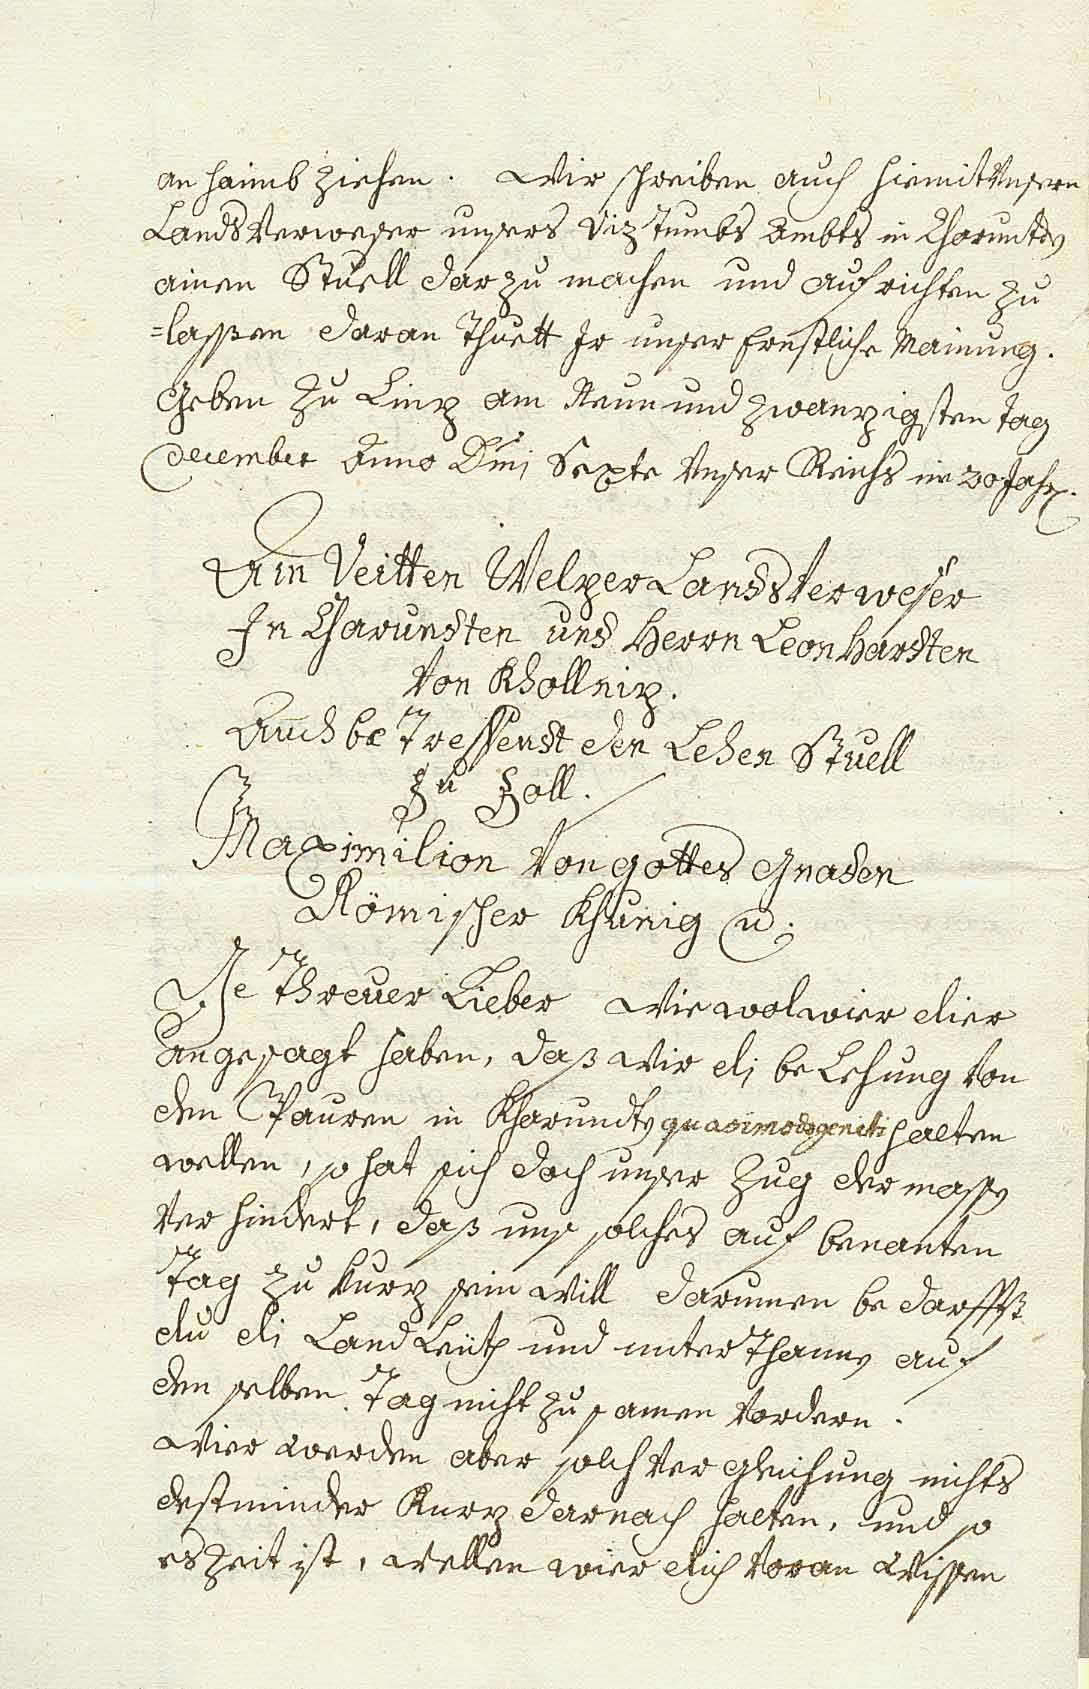 an haimb ziehen. Wir schreiben auch hiemit Unsern
Lands Verweser unsers Viztumbs Ambts in Charundtn
ainen Stuell darzu machen und aufrichten zu
=lassen daran Thuett Ir unser Ernstliche Mainung.
Geben zu Linz am Neun und zwanzigsten Tag
December Anno Dni Sexte Unser Reichs im 20 Jahr.
An Veitten Welzer Landts Verweser
In Charundten und Herrn Leonhardten
Von Khollniz.
Auch be Treffendt den Lehen Stuell
zu Zoll.
Maximilion Von gottes Gnaden
Römischer Khunig
Threuer Lieber Wie wol wier dier
angesagt haben, daß Wir di be Lehung Von
den Pauren in Kharundtn quasimodogeniti halten
wellen, so hat sich doch unser Zug der massn
Ver hindert, daß uns solches auf benanten
Tag zu kurz sein Will darumen be darffst
du di Land Leüth und unter Thannen auf
den selben Tag nicht zu samen Vordern.
Wier werden aber solch Ver gleichung nichts
destminder Kurz darnach halten, und so
es Zeit ist, wellen wier dich Voran Wissen